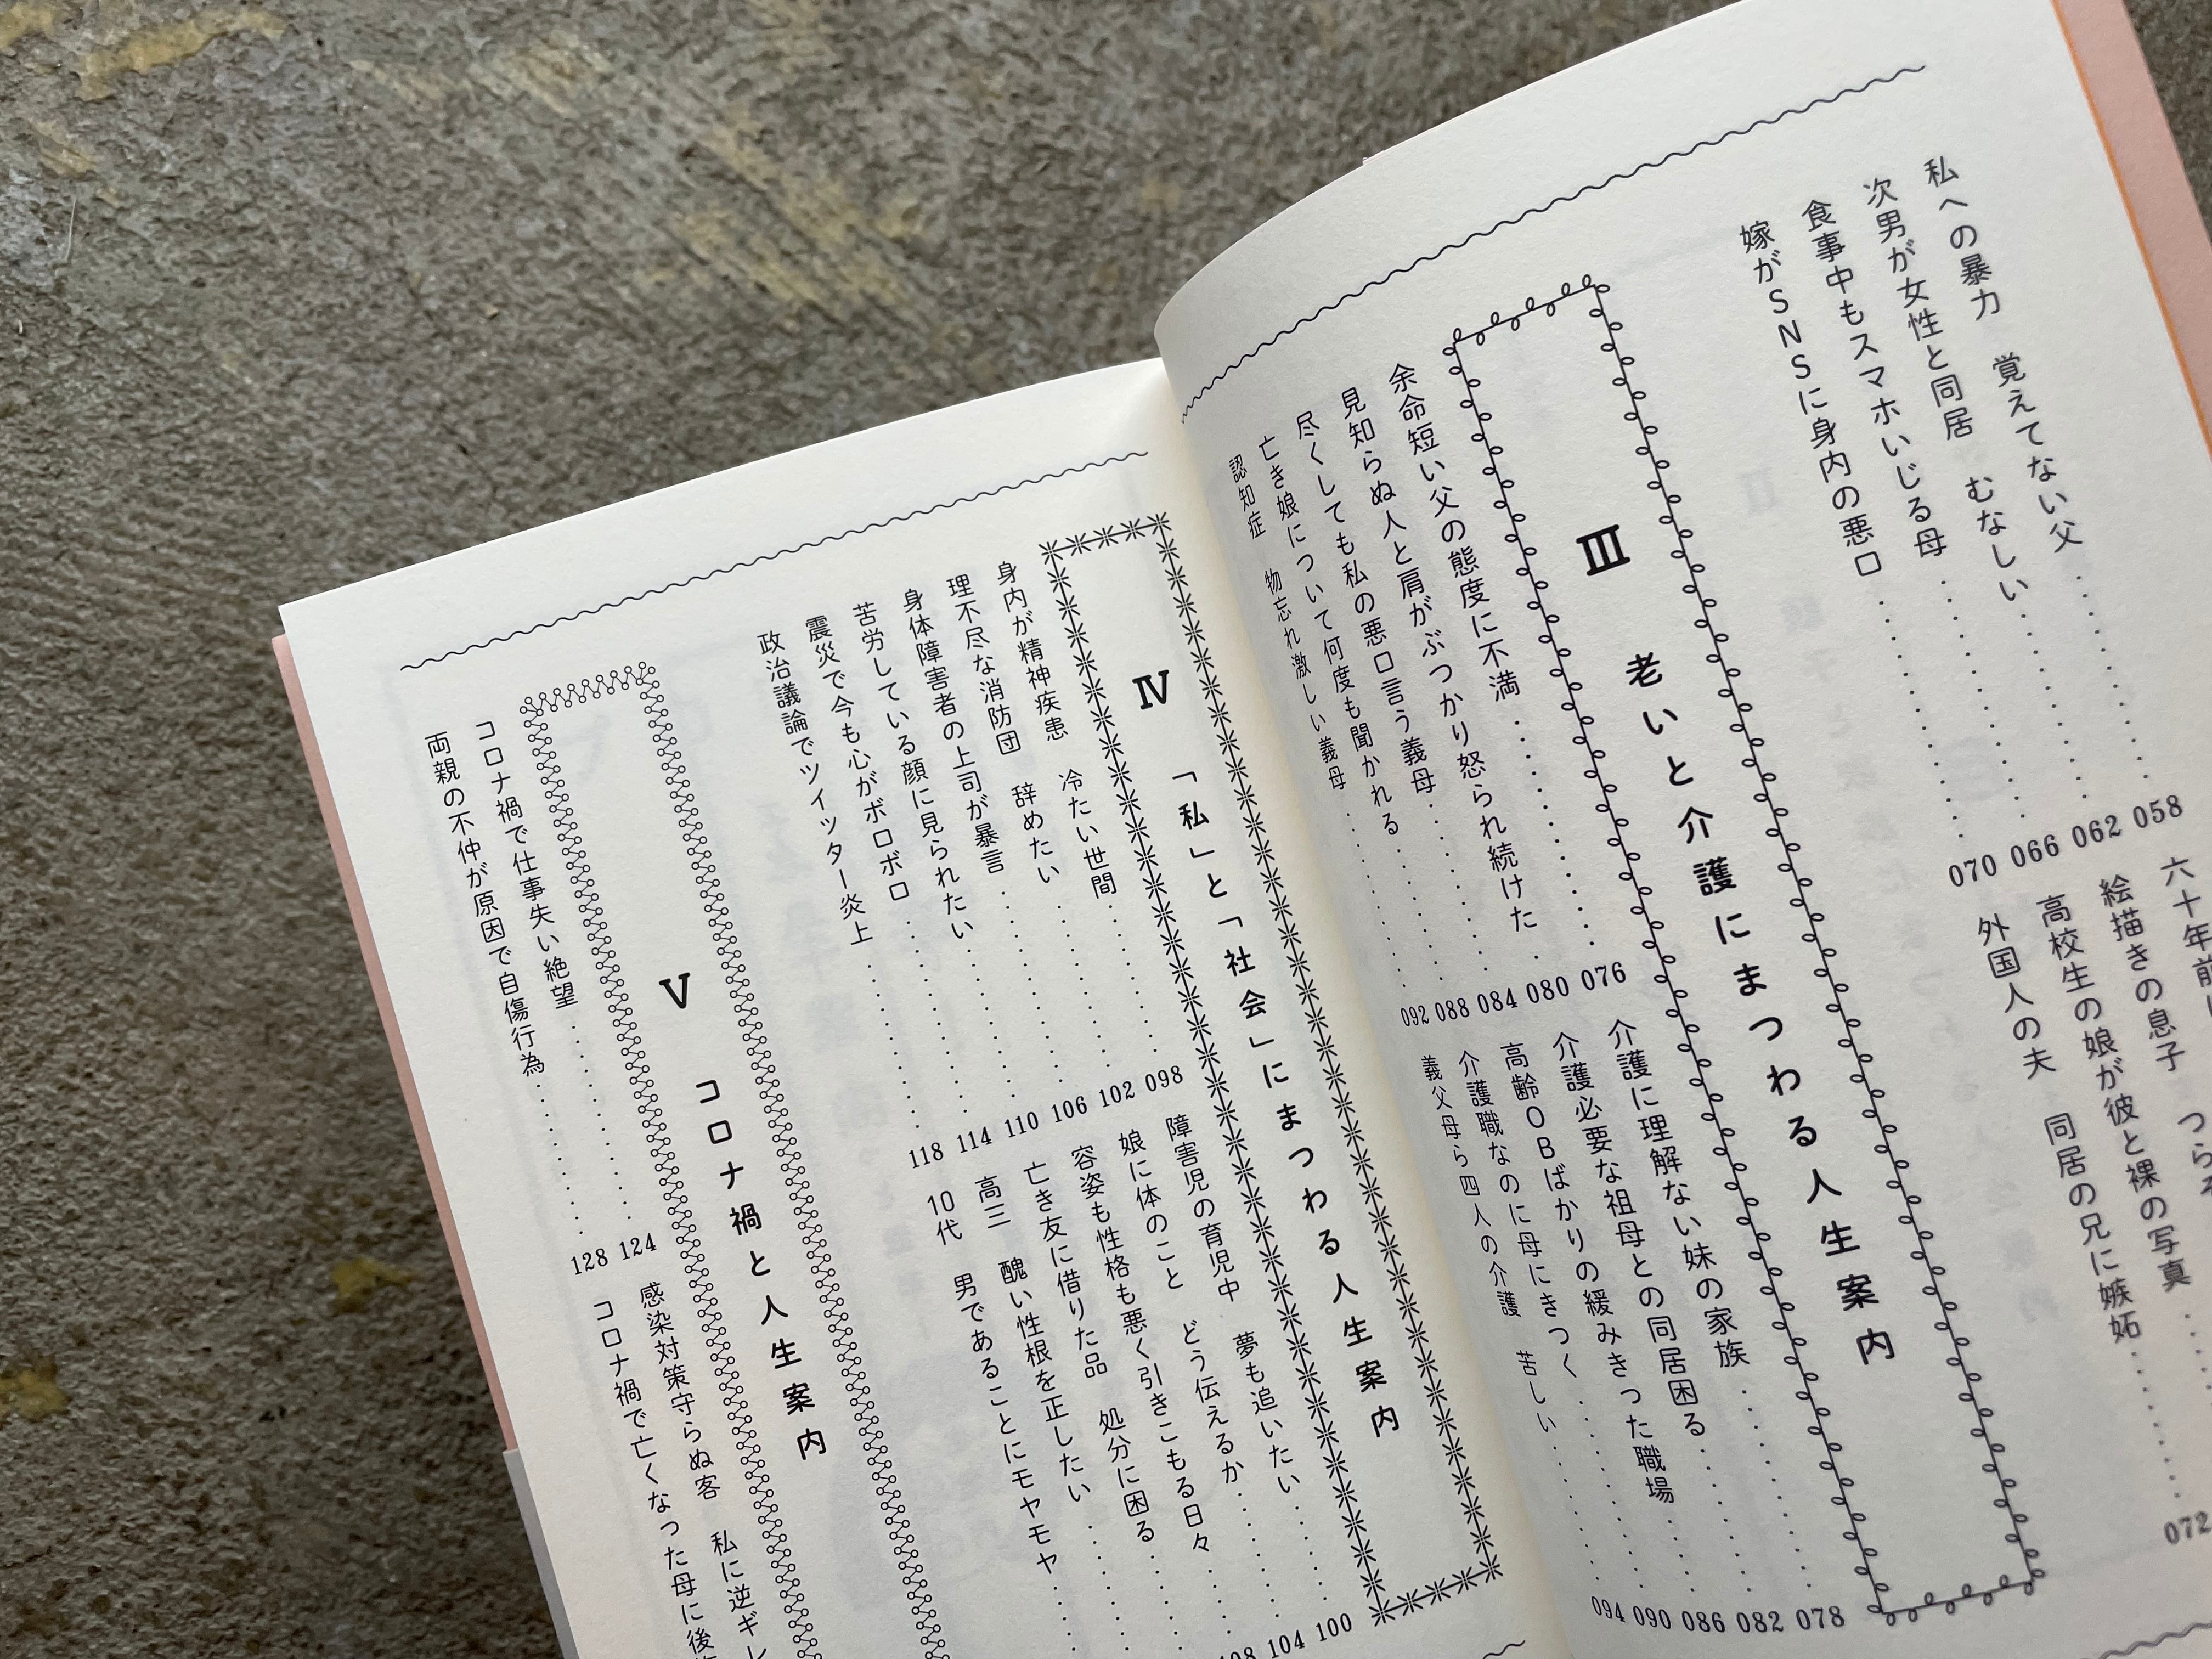 私への暴力　覚えてない父……058
次男が女性と同居　むなしい……062
食事中もスマホいじる母……066
嫁がSNSに身内の悪口……070
六十年前
絵描きの息子　つら
高校生の娘が彼と裸の写真……
外国人の夫　同居の兄に嫉妬……072
Ⅲ　老いと介護にまつわる人生案内
余命短い父の態度に不満……076
見知らぬ人と肩がぶつかり怒られ続けた……080
尽くしても私の悪口言う義母……084
亡き娘について何度も聞かれる……088
認知症　物忘れ激しい義母……092
介護に理解ない妹の家族……078
介護必要な祖母との同居困る……082
高齢OBばかりの緩みきった職場……086
介護職なのに母にきつく……090
義父母ら四人の介護　苦しい……094
Ⅳ　「私」と「社会」にまつわる人生案内
身内が精神疾患　冷たい世間……098
理不尽な消防団　辞めたい……102
身体障害者の上司が暴言……106
苦労している顔に見られたい……110
震災で今も心がボロボロ……114
政治議論でツイッター炎上……118
障害児の育児中　夢も追いたい……100
娘に体のこと　どう伝えるか……104
容姿も性格も悪く引きこもる日々……108
亡き友に借りた品　処分に困る……
高三　醜い性根を正したい……
10代　男であることにモヤモヤ……
Ⅴ　コロナ禍と人生案内
コロナ禍で仕事失い絶望……124
両親の不仲が原因で自傷行為……128
感染対策守らぬ客　私に逆ギレ
コロナ禍で亡くなった母に後